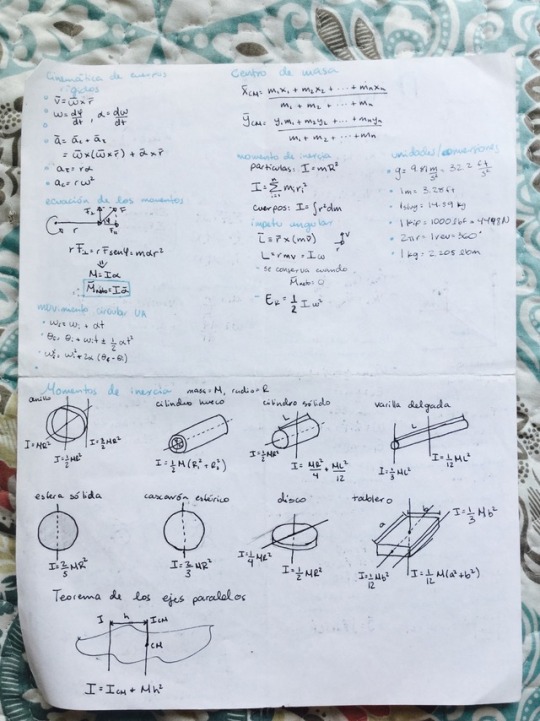 Cinemática de cuerpos
rígidos
• v̄ = ω̄ x r̄
• ω = dφ/dt , α = dω/dt
• ā = ā₁ + ā₂
= ω̄ x (ω̄ x r̄) + ᾱ x r̄
• aₜ = rα
• a꜀ = rω²
ecuación de los momentos
F
r
r F⊥ = r F senφ = mαr²
M = Iα
M̄neto = Iᾱ
movimiento circular UA
• ωf = ωi + αt
• θf = θi + ωit ± 1/2 αt²
• ωf² = ωi² + 2α (θf - θi)
Centro de masa
x̄CM = m₁x₁ + m₂x₂ + ... + mnxn / m₁ + m₂ + ... + mn
ȳCM = y₁m₁ + m₂y₂ + ... + mnyn / m₁ + m₂ + ... + mn
momento de inercia
partículas: I = mR²
I = Σ mᵢrᵢ²
cuerpos: I = ∫r²dm
ímpetu angular
L̄ = r̄ x (mv̄)
v
r
L = rmv = Iω
• se conserva cuando
Mneto = 0
Eₖ = 1/2 Iω²
unidades/conversiones
• g = 9.81 m/s² = 32.2 ft/s²
• 1m = 3.28ft
• 1slug = 14.59 kg
• 1 kip = 1000 lbf = 4448N
• 2πr = 1rev = 360°
• 1 kg = 2.205 lbm
Momentos de inercia masa = M, radio = R
anillo
I = MR²
I = 1/2 MR²
I = 3/2 MR²
cilindro hueco
I = 1/2 M (R₁² + R₂²)
cilindro sólido
L
I = 1/2 MR²
I = MR²/4 + ML²/12
varilla delgada
L
I = 1/3 ML²
I = 1/12 ML²
esfera sólida
I = 2/5 MR²
cascarón esférico
I = 2/3 MR²
disco
I = 1/4 MR²
I = 1/2 MR²
tablero
a
b
I = 1/3 Mb²
I = 1/12 Mb²
I = 1/12 M(a² + b²)
Teorema de los ejes paralelos
I h ICM
CM
I = ICM + Mh²